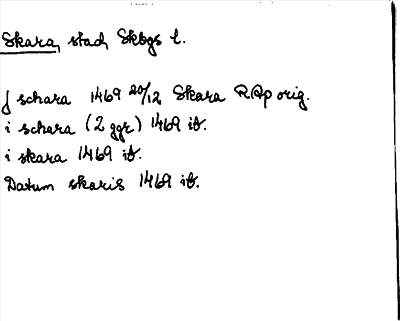 Skara, stad, Skbgs l.
J schara 1469 20/12 Skara RAp orig.
i schara (2 ggr) 1469 ib.
i skara 1469 ib.
Datum skaris 1469 ib.